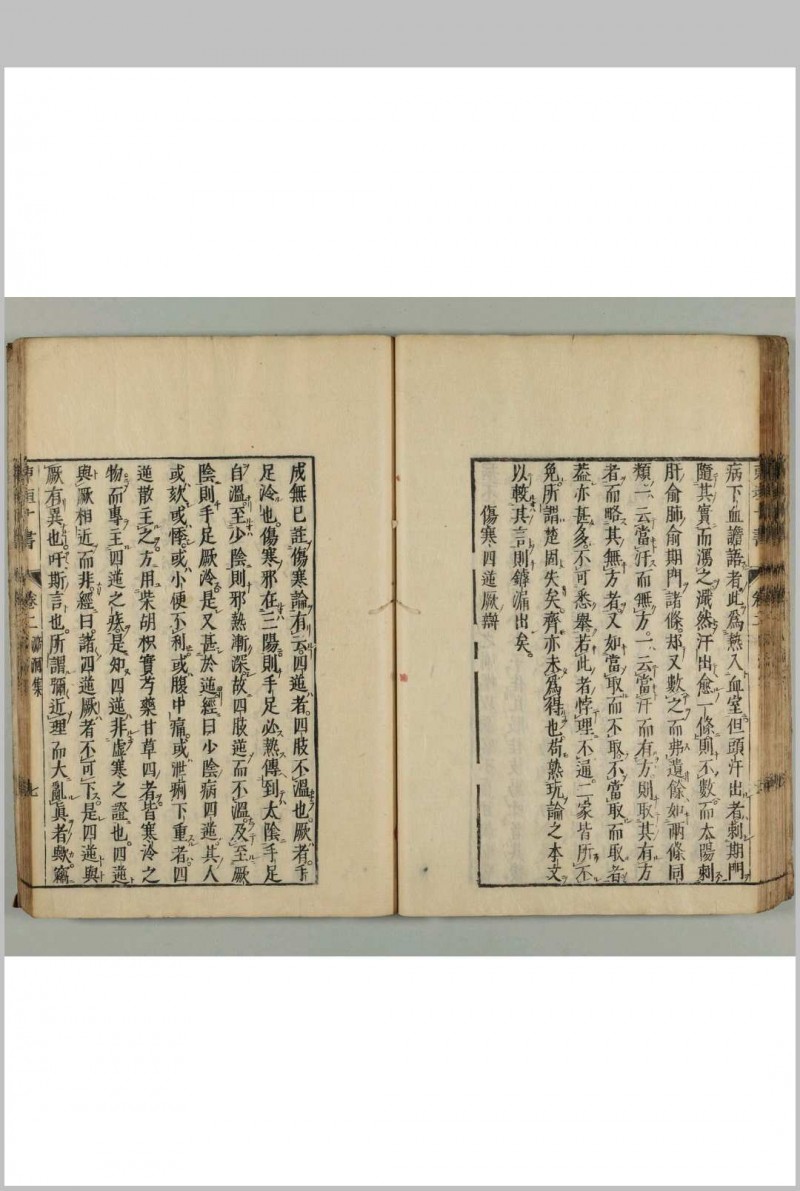 病下血譫語者此爲熱入血室但頭汗出者刺期門
隨其實而瀉之濈然汗出愈一條則不數而太陽刺
肝兪肺兪期門諸條却又數之而弗遺餘如兩條同
類一云當汗而無方一云當汗而有方則取其有方
者而略其無方者又如當取而不取不當取而取者
葢亦甚多不可悉舉若此者悖理不通二家皆所不
免所謂楚固失矣齊亦未爲得也苟熟玩論之本文
以較其言則罅漏出矣
傷寒四逆厥辯
成無已註傷寒論有云四逆者四肢不溫也厥者手
足冷也傷寒邪在三陽則手足必熱傳到太陰手足
自溫至少陰則邪熱漸深故四肢逆而不溫及至厥
陰則手足厥冷是又甚於逆經曰少陰病四逆其人
或欬或悸或小便不利或腹中痛或泄痢下重者四
逆散主之方用柴胡枳實芍藥甘草四者皆寒冷之
物而專主四逆之疾是知四逆非虛寒之證也四逆
與厥相近而非經曰諸四逆厥者不可下是四逆與
厥有異也吁斯言也所謂彌近理而大亂眞者歟竊
東垣十書 卷二 溯洄集 七